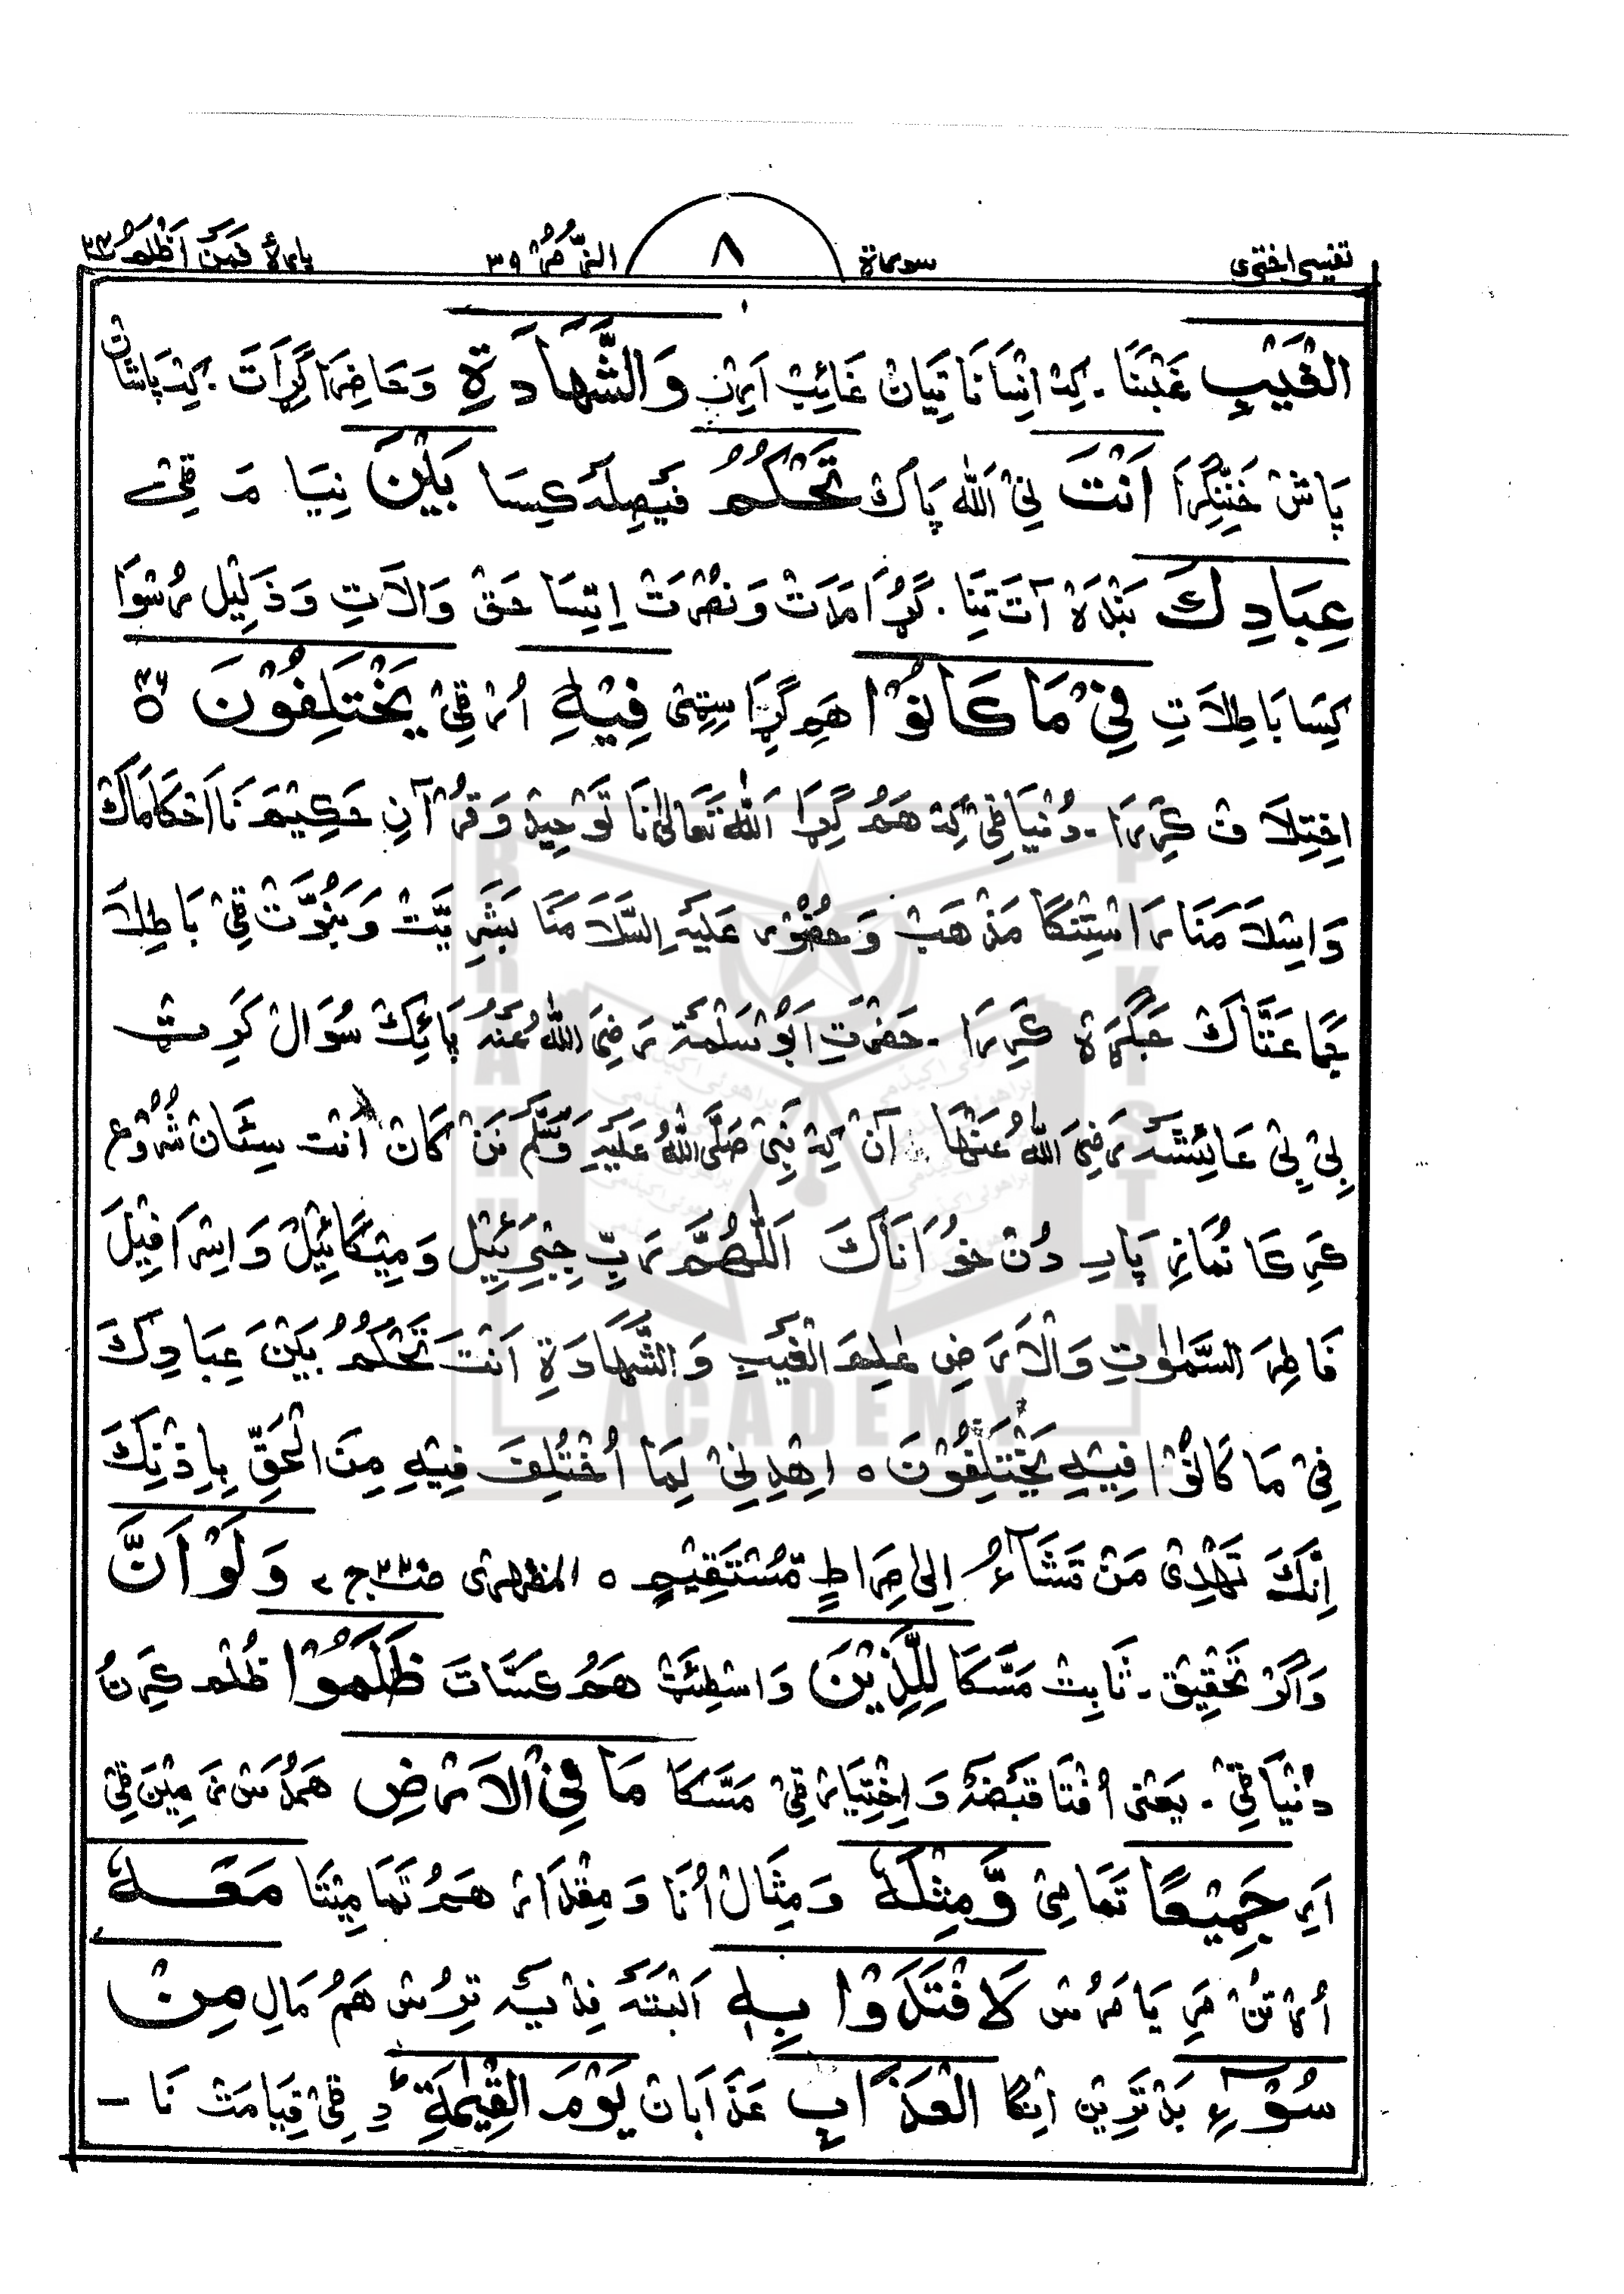 تفسیر اختری سورة ۸ الزُّمَرُ ۳۹ پارهٔ فَمَنْ اَظْلَمُ ۲۴
الْغَیْبِ غَیْبَنَا۔ کِہ اِنْسَانَا تَیَانْ غَائِبْ اَیْرِنْ وَالشَّهَادَةِ وَحَاضِرَا گِڑَاتَ۔ کِہ پَاشَانْ
پَاشْ خَنِّنْگِرَا اَنْتَ نِیْ اَللّٰه پَاکْ تَحْکُمُ فَیْصِلَہ کِیسَا بَیْنَ نِیَیَا مَـ قِیْـ
عِبَادِكَ بَنْدَہْ آتَ تِنَا۔ گُڑَا مَدَتْ وَنُصْرَتْ اِیتِسَا حَقْ وَالَاتِ وَذَلِیْل رُسْوَا
کِیسَا بَاطِلَاتِ فِیْ مَا کَانُوْا هَمِ گِڑَا سِیْٹی فِیْهِ اُرْ قِیْ یَخْتَلِفُوْنَ ۴۶
اِخْتِلَافْ کَرِیرَا۔ دُنْیَا قِیْ کِہ هَمُ گِڑَا اَللّٰه تَعَالیٰ نَا تَوْحِیْد وَقُرْآنِ حَکِیْمَ نَا اَحْکَامَاکْ
وَاِسْلَامَنَا رَاسْتِنْگَا مَذْهَبْ وَحُضُوْر عَلَیْهِ السَّلَامَنَا بَشَرِیَّتْ وَنَبُوَّتْ قِیْ بَاطِلَا
جَمَاعَتَّاکْ جَگِڑَہ کَرِیرَا۔ حَضْرَتِ اَبُوْ سَلْمَة رَضِیَ اللّٰهُ عَنْهُ پَائِکْ سُوَال کَرِیٹ
بِیْ بِیْ عَائِشَہ رَضِیَ اللّٰهُ عَنْهَا آنْ کِہ نَبِیْ صَلَّی اللّٰهُ عَلَیْهِ وَسَلَّم نَنْ کَانْ اَنْت سِتَانْ شُرُوْع
کَرِکَا نُمَازِ پَارِ دُنْ خُوَانَاکَ اَللّٰهُمَّ رَبِّ جِبْرَئِیْل وَمِیْکَائِیْلَ وَاِسْرَافِیْلَ
فَاطِرَ السَّمٰوٰتِ وَالْاَرْضِ عٰلِمَ الْغَیْبِ وَالشَّهَادَةِ اَنْتَ تَحْکُمُ بَیْنَ عِبَادِكَ
فِیْ مَا کَانُوْا فِیْهِ یَخْتَلِفُوْنَ ٥ اِهْدِنِیْ لِمَا اخْتُلِفَ فِیْهِ مِنَ الْحَقِّ بِاِذْنِكَ
اِنَّكَ تَهْدِیْ مَنْ تَشَآءُ اِلیٰ صِرَاطٍ مُّسْتَقِیْمٍ ٥ المظهری ج وَلَوْ اَنَّ
وَاَگَرْ تَحْقِیْق۔ ثَابِتْ مَسَّکَا لِلَّذِیْنَ وَاسْطِئَٹْ هَمُ کَسَّاتَ ظَلَمُوْا ظُلْم کَرِنُ
دُنْیَا قِیْ۔ یَعْنِی اُفْتَا قَبْضَہ وَاِخْتِیَارْ قِیْ مَسَّکَا مَا فِی الْاَرْضِ هَمْدُ سْ زَمِیْنَ قِیْ
اَرِ جَمِیْعًا تَمَامِیْ وَّمِثْلَهٗ وَمِثَال اُنَا وَمِقْدَارْ هَمُ تَمَامِیْنَا مَعَهٗ
اُرْتَنْ مَرِ یَا مَرُسْ لَافْتَدَوْا بِهٖ اَلْبَتَّہ فِدْیَہ تِرُسْ هَمُ مَالِ مِنْ
سُوْٓءِ بَدْتَرِیْن اَنْگَا الْعَذَابِ عَذَابَانْ یَوْمَ الْقِیٰمَةِ دِ قِیْ قِیَامَتْ نَا ۔
BRAHUI
ACADEMY
PAKISTAN